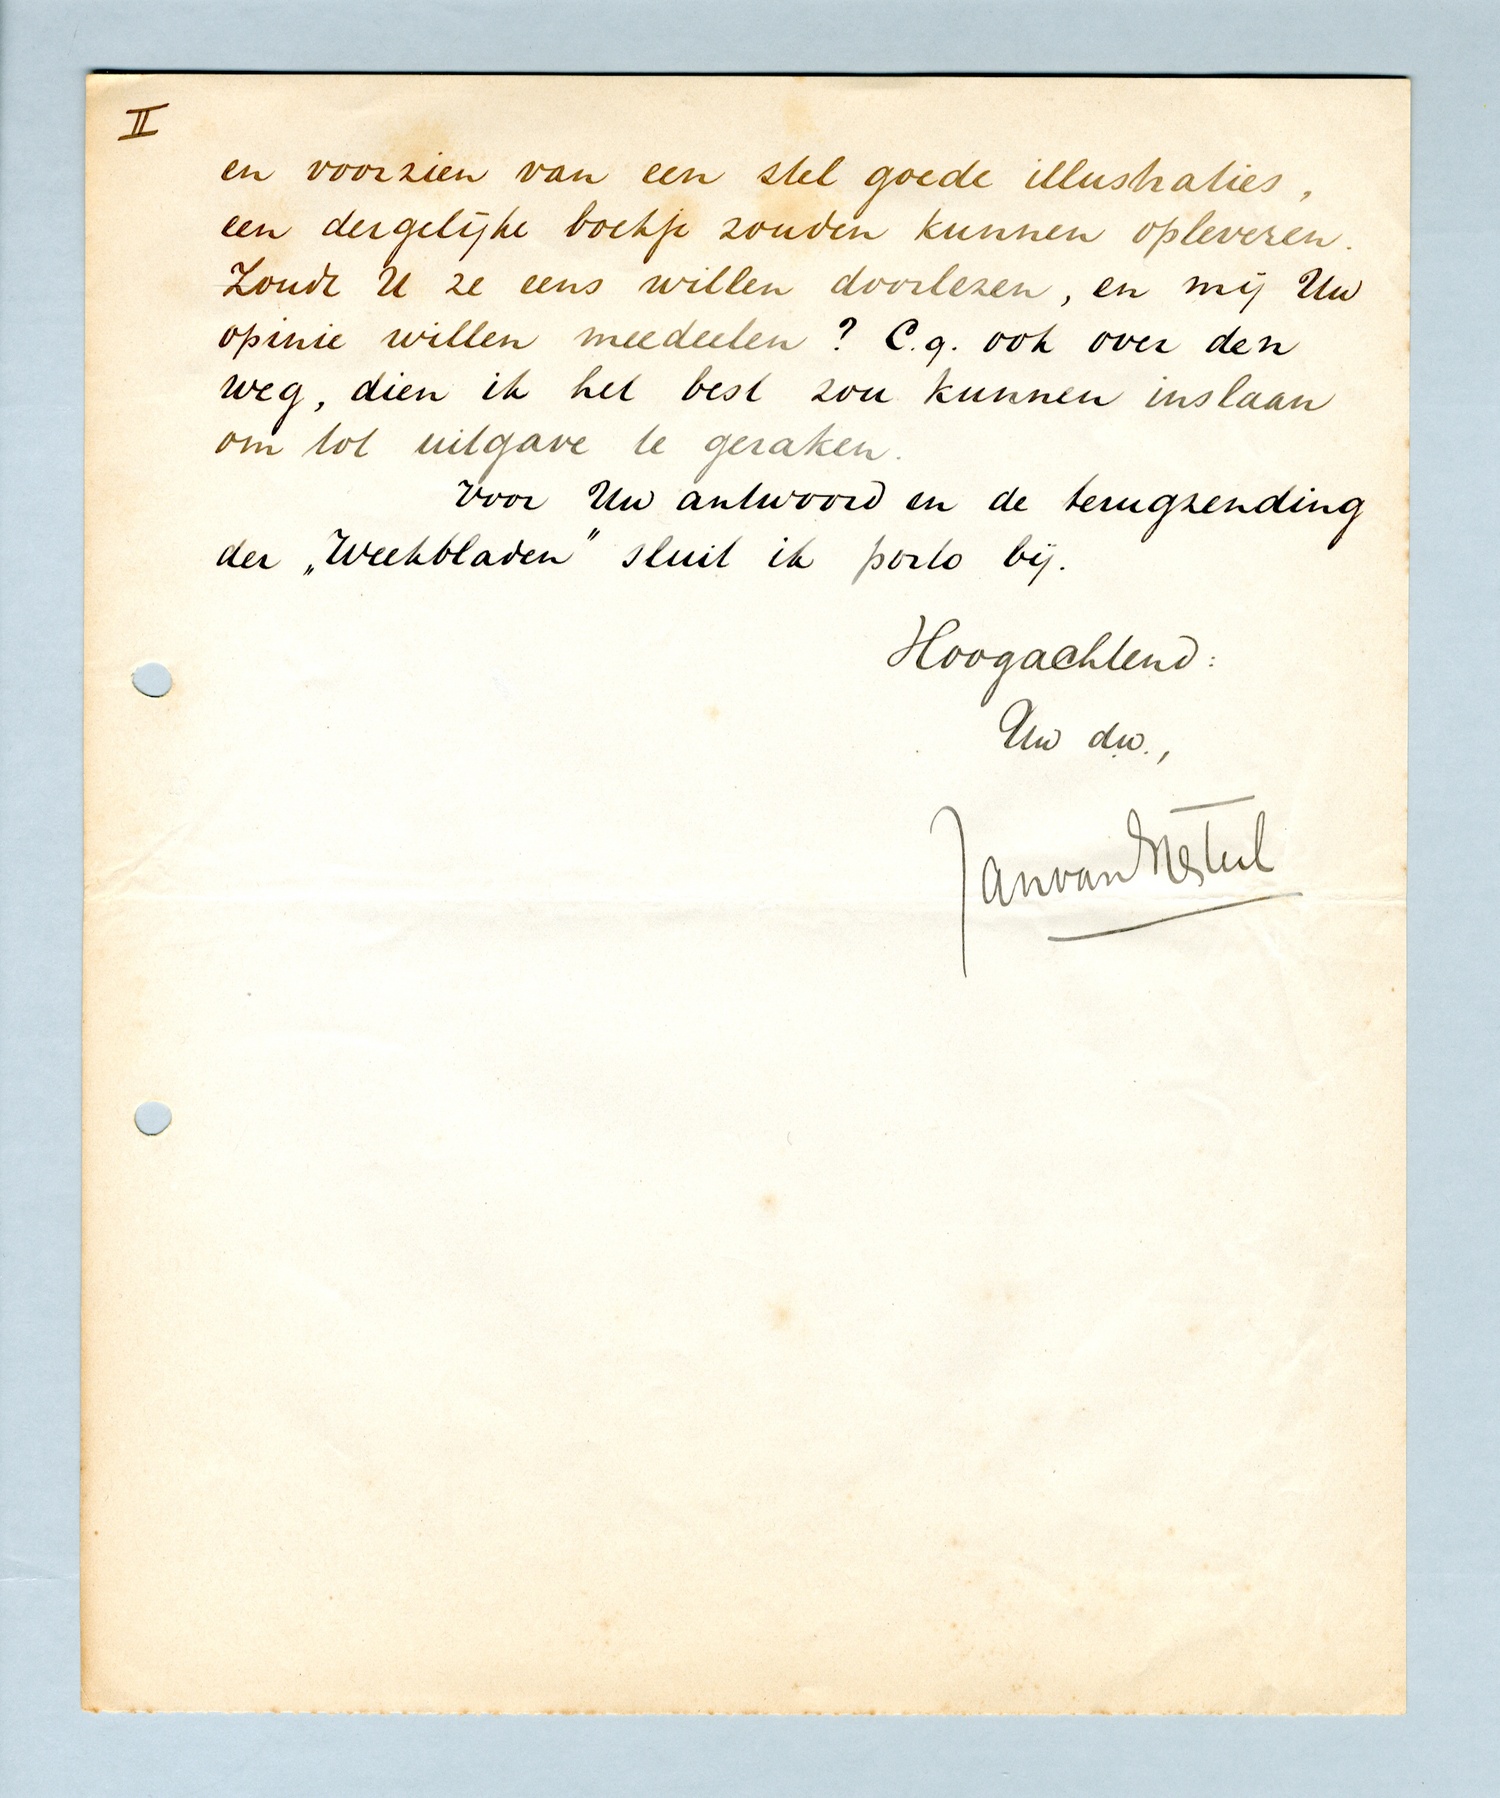 II
en voorzien van een stel goede illustraties,
een dergelijke boekje zouden kunnen opleveren.
Zoudt U ze eens willen doorlezen, en mij Uw
opinie willen meedeelen? C.q. ook over den
weg, dien ik het best zou kunnen inslaan
om tot uitgave te geraken.
Voor Uw antwoord en de terugzending
der „Weekbladen” sluit ik porto bij.
Hoogachtend:
Uw dw.,
Jan van